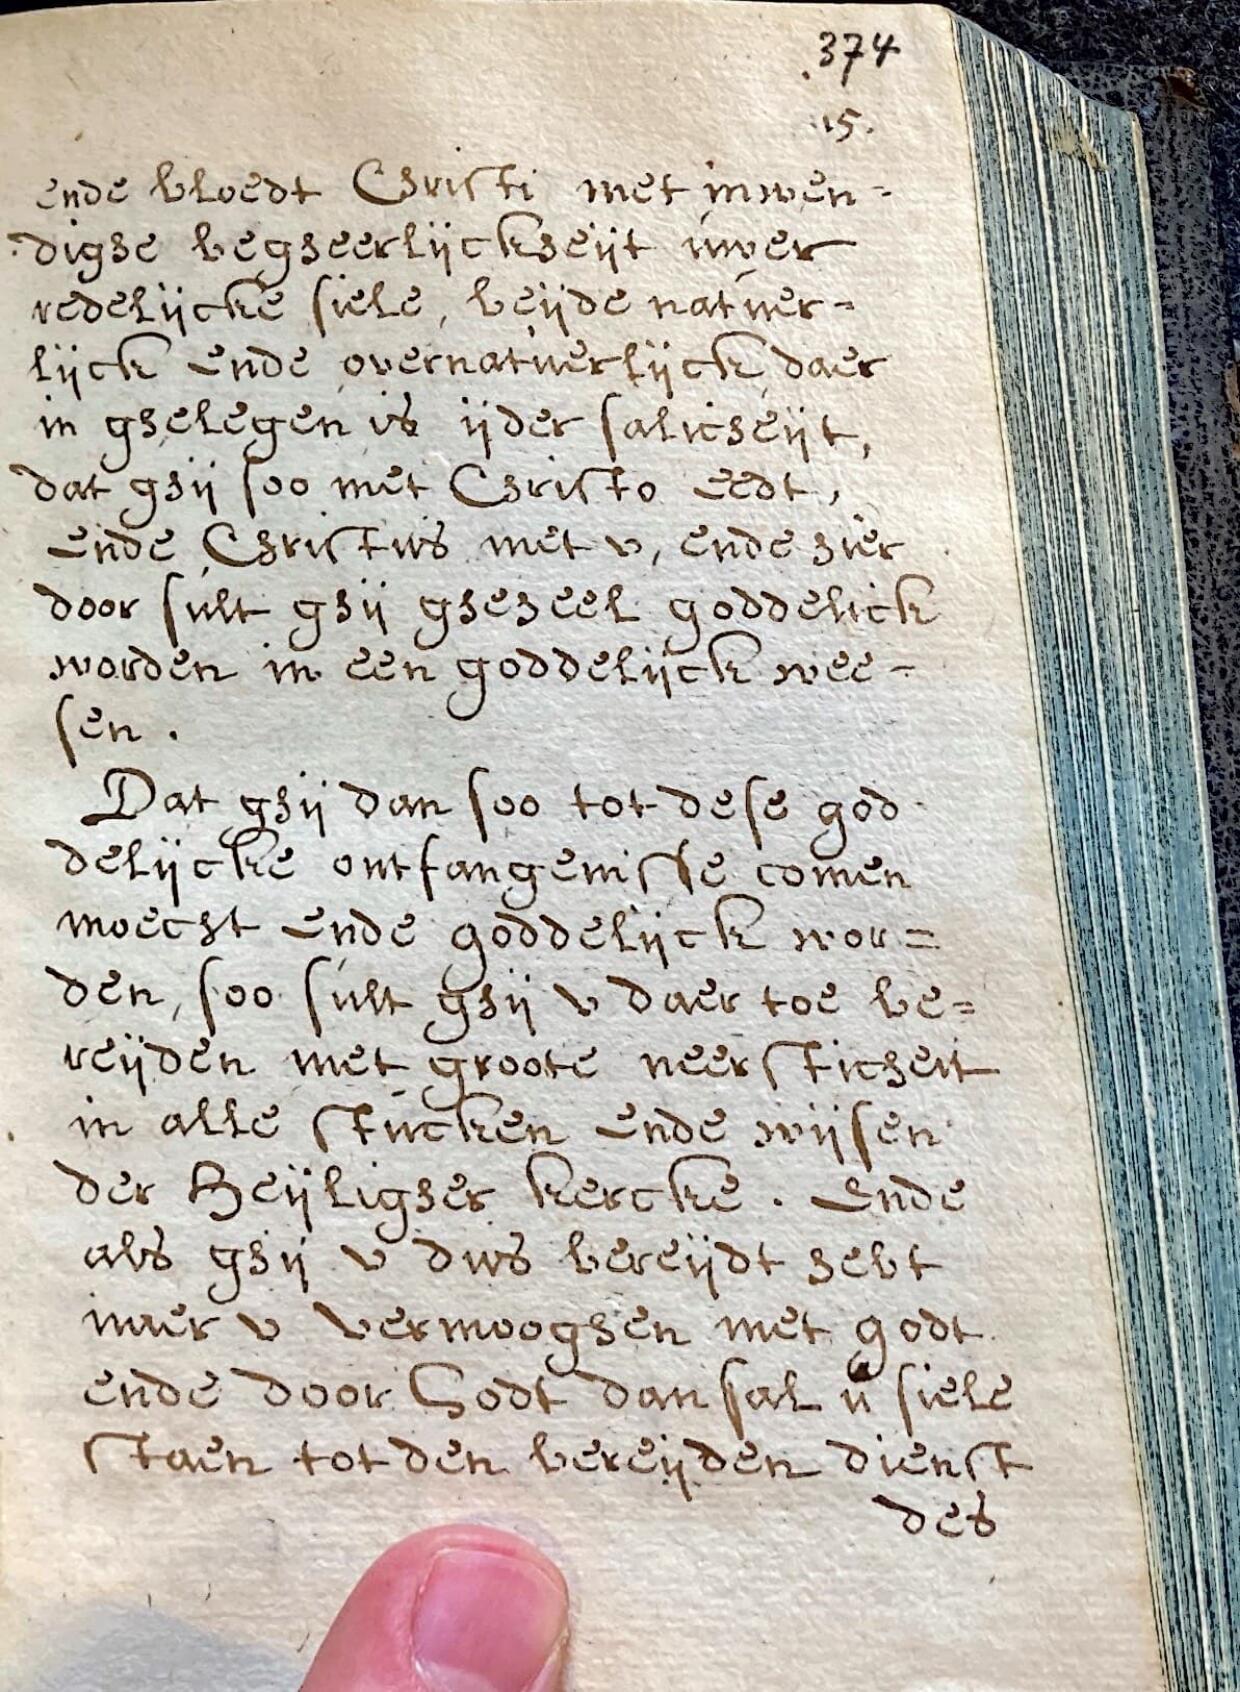 374
15.
ende bloedt Christi met inwen-
dighe begheerlijckheijt uwer
redelijcke siele, beijde natuer-
lijck ende overnatuerlijck daer
in ghelegen is ijder salicheijt,
dat ghij soo met Christo eedt,
ende Christus met v, ende hier
door sult ghij gheheel goddelick
worden in een goddelijck wee-
sen.
Dat ghij dan soo tot dese god
delijcke ontfangenisse comen
moecht ende goddelijck wor=
den, soo sult ghij v daer toe be=
reijden met groote neersticheit
in alle stucken ende wijsen
der Heijligher kercke. Ende
als ghij v dus bereijdt hebt
naer v vermooghen met godt
ende door Godt dan sal u siele
staen tot den bereijden dienst
des